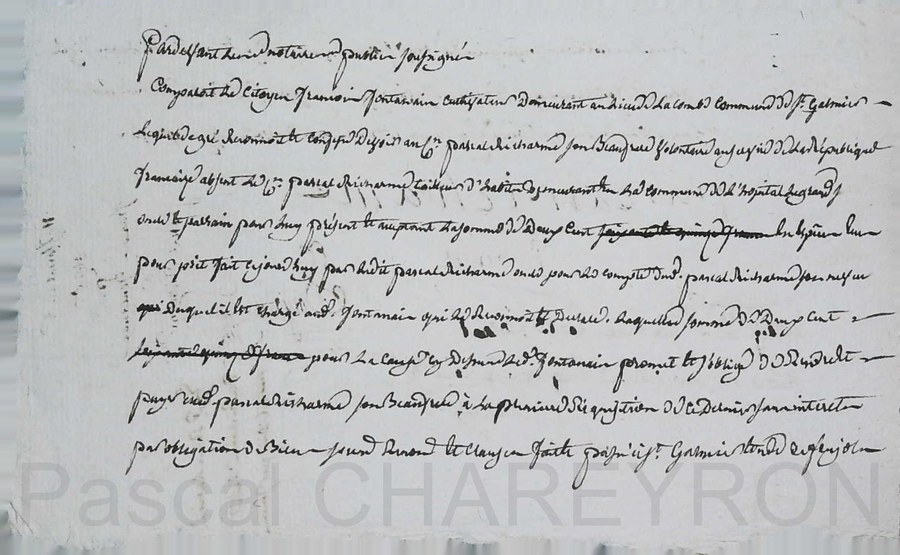 Pardevant le notaire public soussigné
Comparoit le Citoyen françois fontanain Cultivateur Demeurant au lieu de la Combe Commune de St. Galmier
Lequel de gré Reconnoit et Confesse Devoir au Cn. pascal Richarme son Beaufrere Volontaire au service de la République
françoise absent le Cn. pascal Richarme tailleur d'habits Demeurant en la Commune de L'hopital Legrand
oncle et parrain pour luy présent et acceptant la somme de Deux Cent soixante et quinze francs
pour prêt fait cejourd'huy par ledit pascal Richarme oncle pour le compte dud. pascal Richarme son neveu
qui Duquel il est chargé aud. fontanain qui le Reconnoit Laquelle somme de Deux Cent
soixante et quinze francs pour la Cause cy Dessus led. fontanain promet et s'oblige de Rendre et
payer aud. pascal Richarme son Beaufrere à la premiere Requisition de ce Dernier sans interet
par obligation de Biens soumis Renond et Clauses fait et passé à St. Galmier Etude
Pascal CHAREYRON